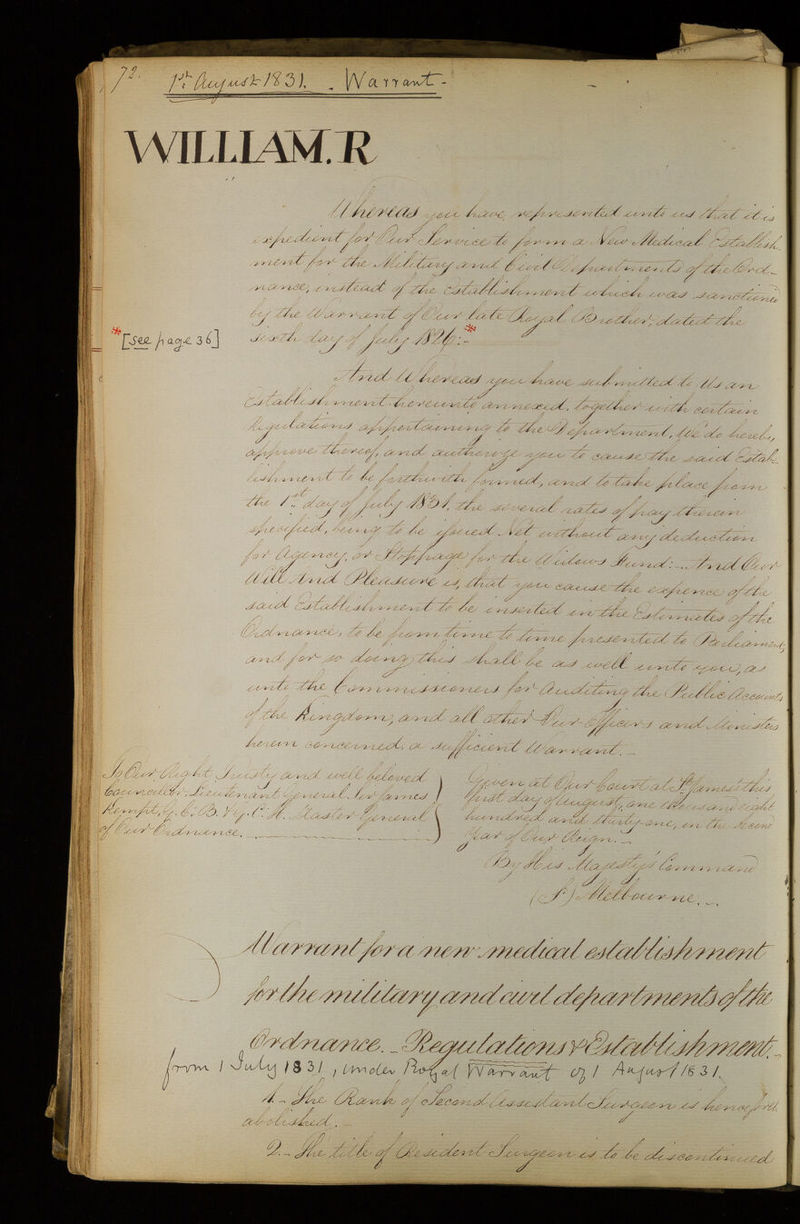 72.
1st August 1831. . Warrant -
WILLIAM. R
Whereas you have represented unto us that it is
expedient for Our Service to form a New Medical Establish-
ment for the Military and Civil Departments of the Ord-
nance, instead of the Establishment which was sanctioned
by the Warrant of Our late Royal Brother, dated the
sixth day of July 1826:- *
*[see page 36]
And Whereas you have submitted to Us an
Establishment hereunto annexed, together with certain
Regulations appertaining to the Department, We do hereby
approve thereof, and authorize you to cause the said Estab-
lishment to be forthwith formed, and to take place from
the 1st day of July 1831, the several rates of pay therein
specified, being to be issued Net without any deduction
for Agency, or Stoppage for the Widows Fund:- And Our
Will And Pleasure is, that you cause the expence of the
said Establishment to be inserted in the Estimates of the
Ordnance, to be from time to time presented to Parliament,
and for so doing this shall be as well unto you, as
unto the Commissioners for Auditing the Public Accounts
of the Kingdom, and all other Our Officers and Ministers
herein concerned, a sufficient Warrant. -
To Our Right Trusty and well beloved
Councillor Lieutenant General Sir James
Kempt, G. C. B. & G. C. H. Master General
of Our Ordnance.
Given at Our Court at St James's this
first day of August, one thousand eight
hundred and thirty one, in the second
Year of Our Reign. -
By His Majesty's Command
(S) Melbourne. -
Warrant for a new medical establishment
for the military and civil departments of the
Ordnance. - Regulations & Establishment. -
from 1 July 1831, under Royal Warrant of 1 August 1831.
1. - The Rank of Second Assistant Surgeon is henceforth
abolished. -
2. - The title of Resident Surgeon is to be discontinued